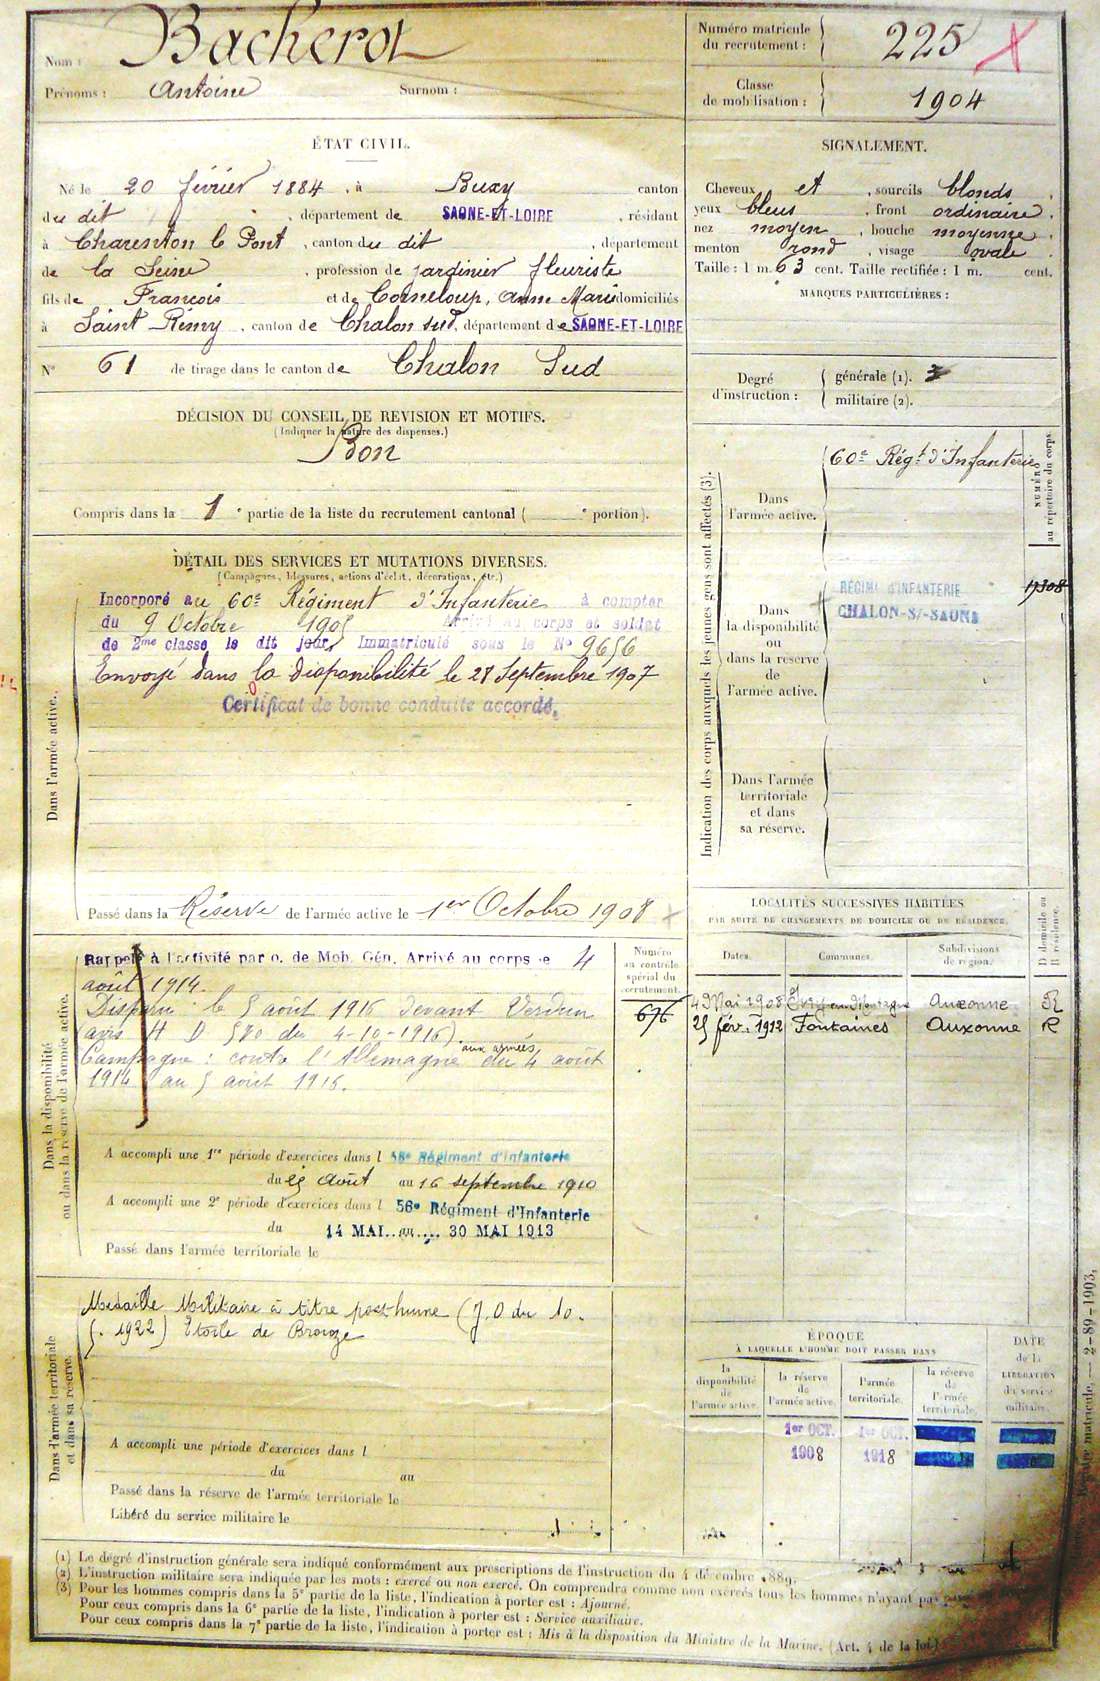 Nom : Bacherot
Prénoms : Antoine Surnom :
Numéro matricule du recrutement : 225 X
Classe de mobilisation : 1904
ÉTAT CIVIL.
Né le 20 février 1884, à Buxy canton
du dit, département de SAONE-ET-LOIRE, résidant
à Charenton le Pont, canton du dit, département
de la Seine, profession de jardinier fleuriste
fils de François et de Corneloup, Anne Marie domiciliés
à Saint Rémy, canton de Chalon sud, département de SAONE-ET-LOIRE
N° 61 de tirage dans le canton de Chalon Sud
SIGNALEMENT.
Cheveux et, sourcils blonds,
yeux bleus, front ordinaire,
nez moyen, bouche moyenne,
menton rond, visage ovale.
Taille : 1 m. 63 cent. Taille rectifiée : 1 m. cent.
MARQUES PARTICULIÈRES :
Degré d'instruction :
générale (1). 3
militaire (2).
DÉCISION DU CONSEIL DE REVISION ET MOTIFS.
(Indiquer la nature des dispenses.)
Bon
Compris dans la 1e partie de la liste du recrutement cantonal ( e portion).
DÉTAIL DES SERVICES ET MUTATIONS DIVERSES.
(Campagnes, blessures, actions d'éclat, décorations, etc.)
Dans l'armée active.
Incorporé au 60e Régiment d'Infanterie à compter
du 9 Octobre 1905 Arrivé au corps et soldat
de 2me classe le dit jour, Immatriculé sous le N° 9656
Envoyé dans la disponibilité le 28 Septembre 1907
Certificat de bonne conduite accordé.
Passé dans la Réserve de l'armée active le 1er Octobre 1908
Indication des corps auxquels les jeunes gens sont affectés (3).
Dans l'armée active.
60e Régt d'Infanterie
NUMÉRO au répertoire du corps
Dans la disponibilité ou dans la réserve de l'armée active.
RÉGIMt D'INFANTERIE
CHALON-S/-SAONE
Dans l'armée territoriale et dans sa réserve.
Dans la disponibilité ou dans la réserve de l'armée active.
Rappelé à l'activité par o. de Mob. Gén. Arrivé au corps le 4
août 1914.
Disparu le 5 août 1916 devant Verdun
(avis H D 580 du 4-10-1916).
Campagne : contre l'Allemagne aux armées du 4 août
1914 au 5 août 1916.
Numéro au contrôle spécial du recrutement.
676
A accompli une 1re période d'exercices dans l 56e Régiment d'Infanterie
du 25 août au 16 septembre 1910
A accompli une 2e période d'exercices dans l 56e Régiment d'Infanterie
du 14 MAI au 30 MAI 1913
Passé dans l'armée territoriale le
LOCALITÉS SUCCESSIVES HABITÉES
PAR SUITE DE CHANGEMENTS DE DOMICILE OU DE RÉSIDENCE.
Dates. Communes. Subdivisions de région. D domicile ou R résidence.
4 Mai 1908 Auxonne R
25 fév. 1912 Fontaines Auxonne R
Dans l'armée territoriale et dans sa réserve.
Médaille Militaire à titre posthume (J.O du 10.
5. 1922) Etoile de Bronze
A accompli une période d'exercices dans l
du au
Passé dans la réserve de l'armée territoriale le
Libéré du service militaire le
ÉPOQUE
À LAQUELLE L'HOMME DOIT PASSER DANS
la disponibilité de l'armée active.
la réserve de l'armée active.
l'armée territoriale.
la réserve de l'armée territoriale.
DATE de la LIBÉRATION du service militaire.
1er OCT. 1908
1er OCT. 1918
Registre matricule. — 2-89-1903.
(1) Le degré d'instruction générale sera indiqué conformément aux prescriptions de l'instruction du 4 décembre 1889.
(2) L'instruction militaire sera indiquée par les mots : exercé ou non exercé. On comprendra comme non exercés tous les hommes n'ayant pas
(3) Pour les hommes compris dans la 5e partie de la liste, l'indication à porter est : Ajourné.
Pour ceux compris dans la 6e partie de la liste, l'indication à porter est : Service auxiliaire.
Pour ceux compris dans la 7e partie de la liste, l'indication à porter est : Mis à la disposition du Ministre de la Marine. (Art. 4 de la loi.)